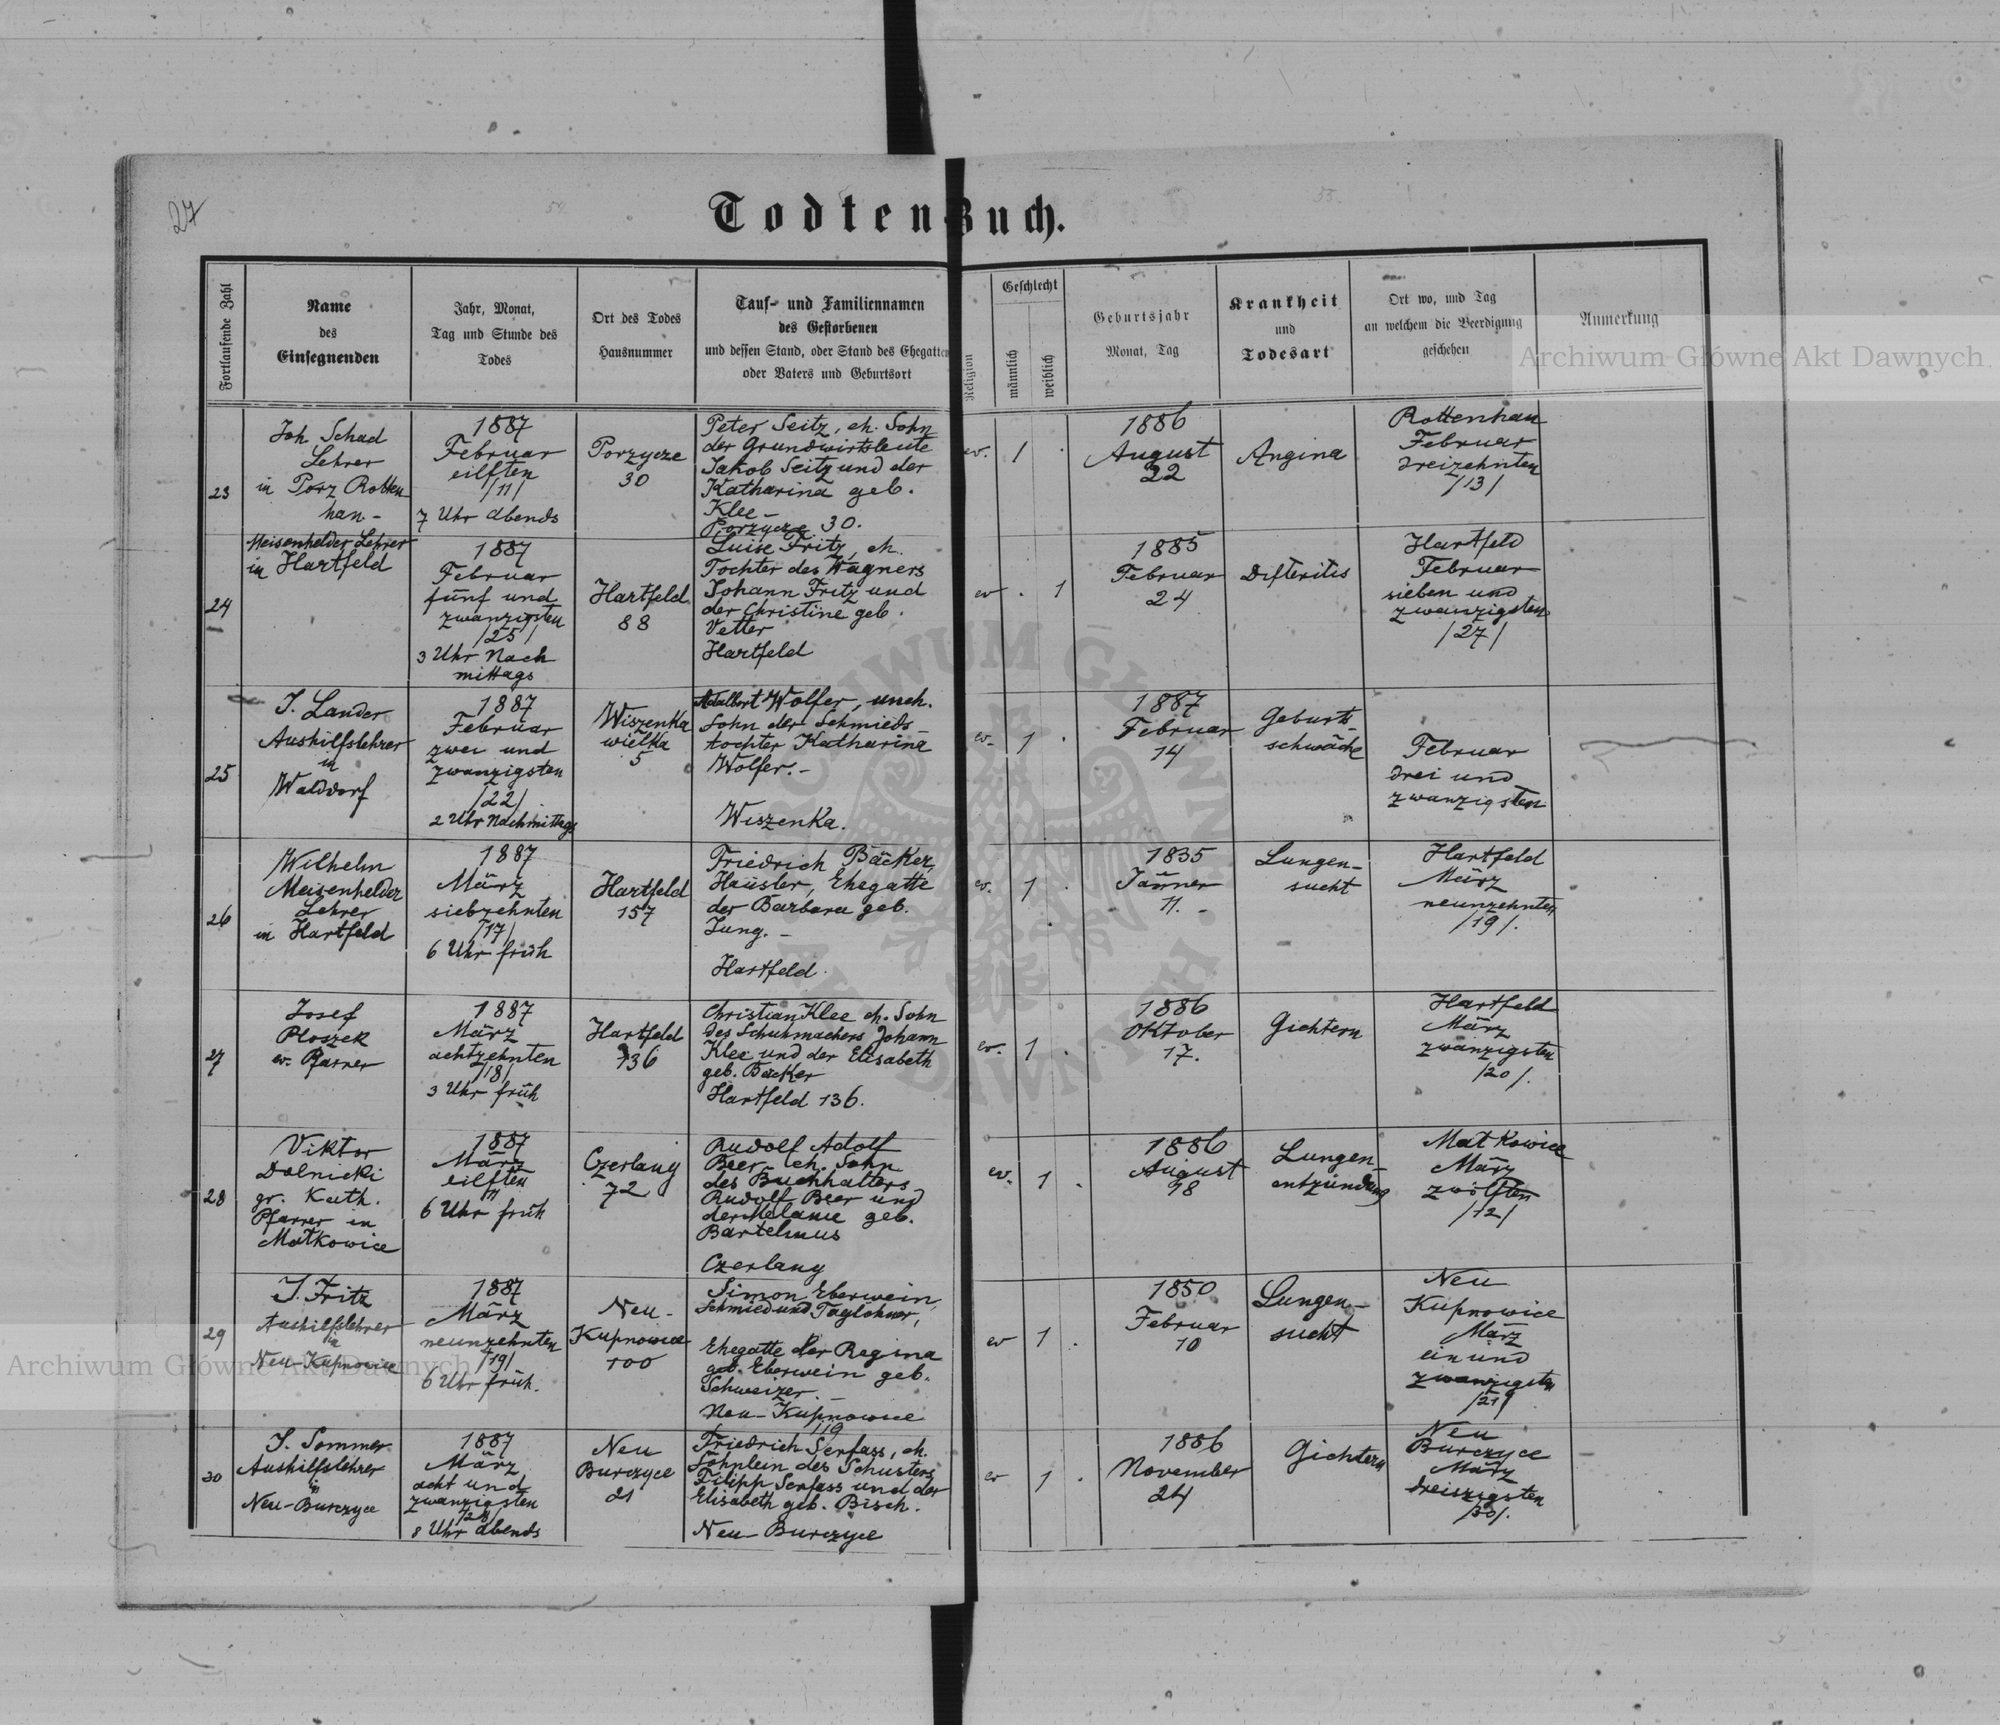 27
Todten-Buch.
Fortlaufende Zahl
Name
des
Einsegnenden
Jahr, Monat,
Tag und Stunde des
Todes
Ort des Todes
Hausnummer
Tauf- und Familiennamen
des Gestorbenen
und dessen Stand, oder Stand des Ehegatten
oder Vaters und Geburtsort
Religion
Geschlecht
männlich
weiblich
Geburtsjahr
Monat, Tag
Krankheit
und
Todesart
Ort wo, und Tag
an welchem die Beerdigung
geschehen
Anmerkung
Archiwum Główne Akt Dawnych
23
Joh Schad
Lehrer
in Porz Rotten
han -
1887
Februar
eilften
/11/
7 Uhr abends
Porzycze
30
Peter Seitz, eh. Sohn
der Grundwirtsleute
Jakob Seitz und der
Katharina geb.
Klee -
Porzycze 30.
ev.
1
.
1886
August
22
Angina
Rottenhan
Februar
dreizehnten
/13/
24
Meisenhelder Lehrer
in Hartfeld
1887
Februar
fünf und
zwanzigsten
/25/
3 Uhr Nach
mittags
Hartfeld
88
Luise Fritz, eh.
Tochter des Wagners
Johann Fritz und
der Christine geb.
Vetter
Hartfeld
ev
.
1
1885
Februar
24
Difteritis
Hartfeld
Februar
sieben und
zwanzigsten
/27/
25
J. Lander
Aushilfslehrer
in
Walddorf
1887
Februar
zwei und
zwanzigsten
/22/
2 Uhr Nachmittags
Wiszenka
wielka
5
Adalbert Wolfer, uneh.
Sohn der Schmieds-
tochter Katharina
Wolfer. -
Wiszenka.
ev.
1
.
1887
Februar
14
Geburts
schwäche
Februar
drei und
zwanzigsten
26
Wilhelm
Meisenhelder
Lehrer
in Hartfeld
1887
März
siebzehnten
/17/
6 Uhr früh
Hartfeld
157
Friedrich Bäcker,
Häusler, Ehegatte
der Barbara geb.
Jung. -
Hartfeld.
ev.
1
.
1835
Jänner
11. -
Lungen-
sucht
Hartfeld
März
neunzehnten
/19/.
27
Josef
Ploszek
ev. Pfarrer
1887
März
achtzehnten
/18/
3 Uhr früh
Hartfeld
136
Christian Klee eh. Sohn
des Schuhmachers Johann
Klee und der Elisabeth
geb. Bäcker
Hartfeld 136.
ev.
1
.
1886
Oktober
17.
Gichtern
Hartfeld
März
zwanzigsten
/20/.
28
Viktor
Dolnicki
gr. Kath.
Pfarrer in
Matkowice
1887
März
eilften
11
6 Uhr früh
Czerlany
72
Rudolf Adolf
Beer eh. Sohn
des Buchhalters
Rudolf Beer und
der Melanie geb.
Bartelmus
Czerlany
ev.
1
.
1886
August
18
Lungen-
entzündung
Matkowice
März
zwölften
/12/
29
J. Fritz
Aushilfslehrer
in
Neu-Kupnowice
1887
März
neunzehnten
/19/
6 Uhr früh.
Neu-
Kupnowice
100
Simon Eberwein,
Schmied und Taglöhner,
Ehegatte der Regina
geb. Eberwein geb.
Schweizer. -
Neu-Kupnowice
119
ev
1
.
1850
Februar
10
Lungen-
sucht
Neu
Kupnowice
März
ein und
zwanzigsten
/21/
30
J. Sommer
Aushilfslehrer
in
Neu-Burczyce
1887
März
acht und
zwanzigsten
/28/
8 Uhr abends
Neu
Burczyce
21
Friedrich Serfass, eh.
Söhnlein des Schusters
Filipp Serfass und der
Elisabeth geb. Bisch.
Neu-Burczyce
ev
1
.
1886
November
24
Gichtern
Neu
Burczyce
März
dreiszigsten
/30/.
Archiwum Główne Akt Dawnych